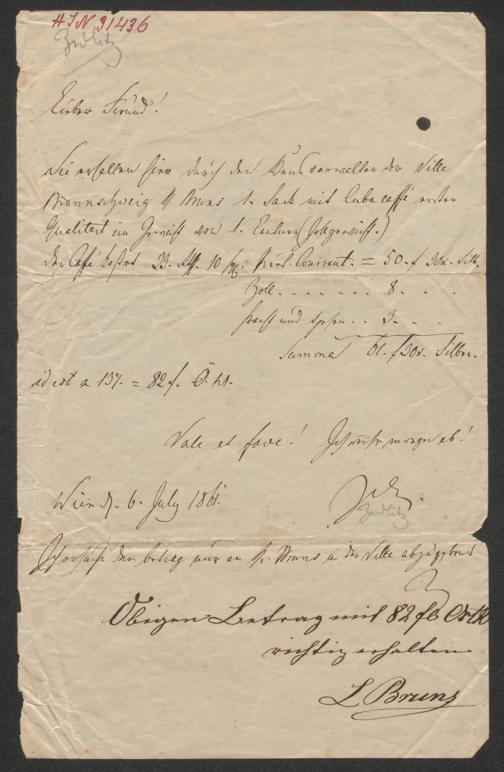 HIN 31436
Zedlitz
Lieber Freund!
Sie erhalten hier durch den Hausverwalter der Ville
Braunschweig H. Bruns 1. Sack mit Cuba caffé erster
Qualitert im Gewicht von 1. Zentner (Zollgewicht.)
Der Café kostet 33. 10 Courant. = 50. f 30x. Silb.
Zoll . . . . . . . 8. . .
Fracht und 3. . . .
Summa 61. f 30x. Silber.
id est a 137. = 82 f. Ö. W.
Vale et fave! Ich reise morgen ab!
Wien d. 6. July 1861.
Zedlitz
Ich ersuche den betrag nur an H. Bruns in der Ville abzugeben
Obigen Betrag mit 82 fl Öst W
richtig erhalten
L Bruns